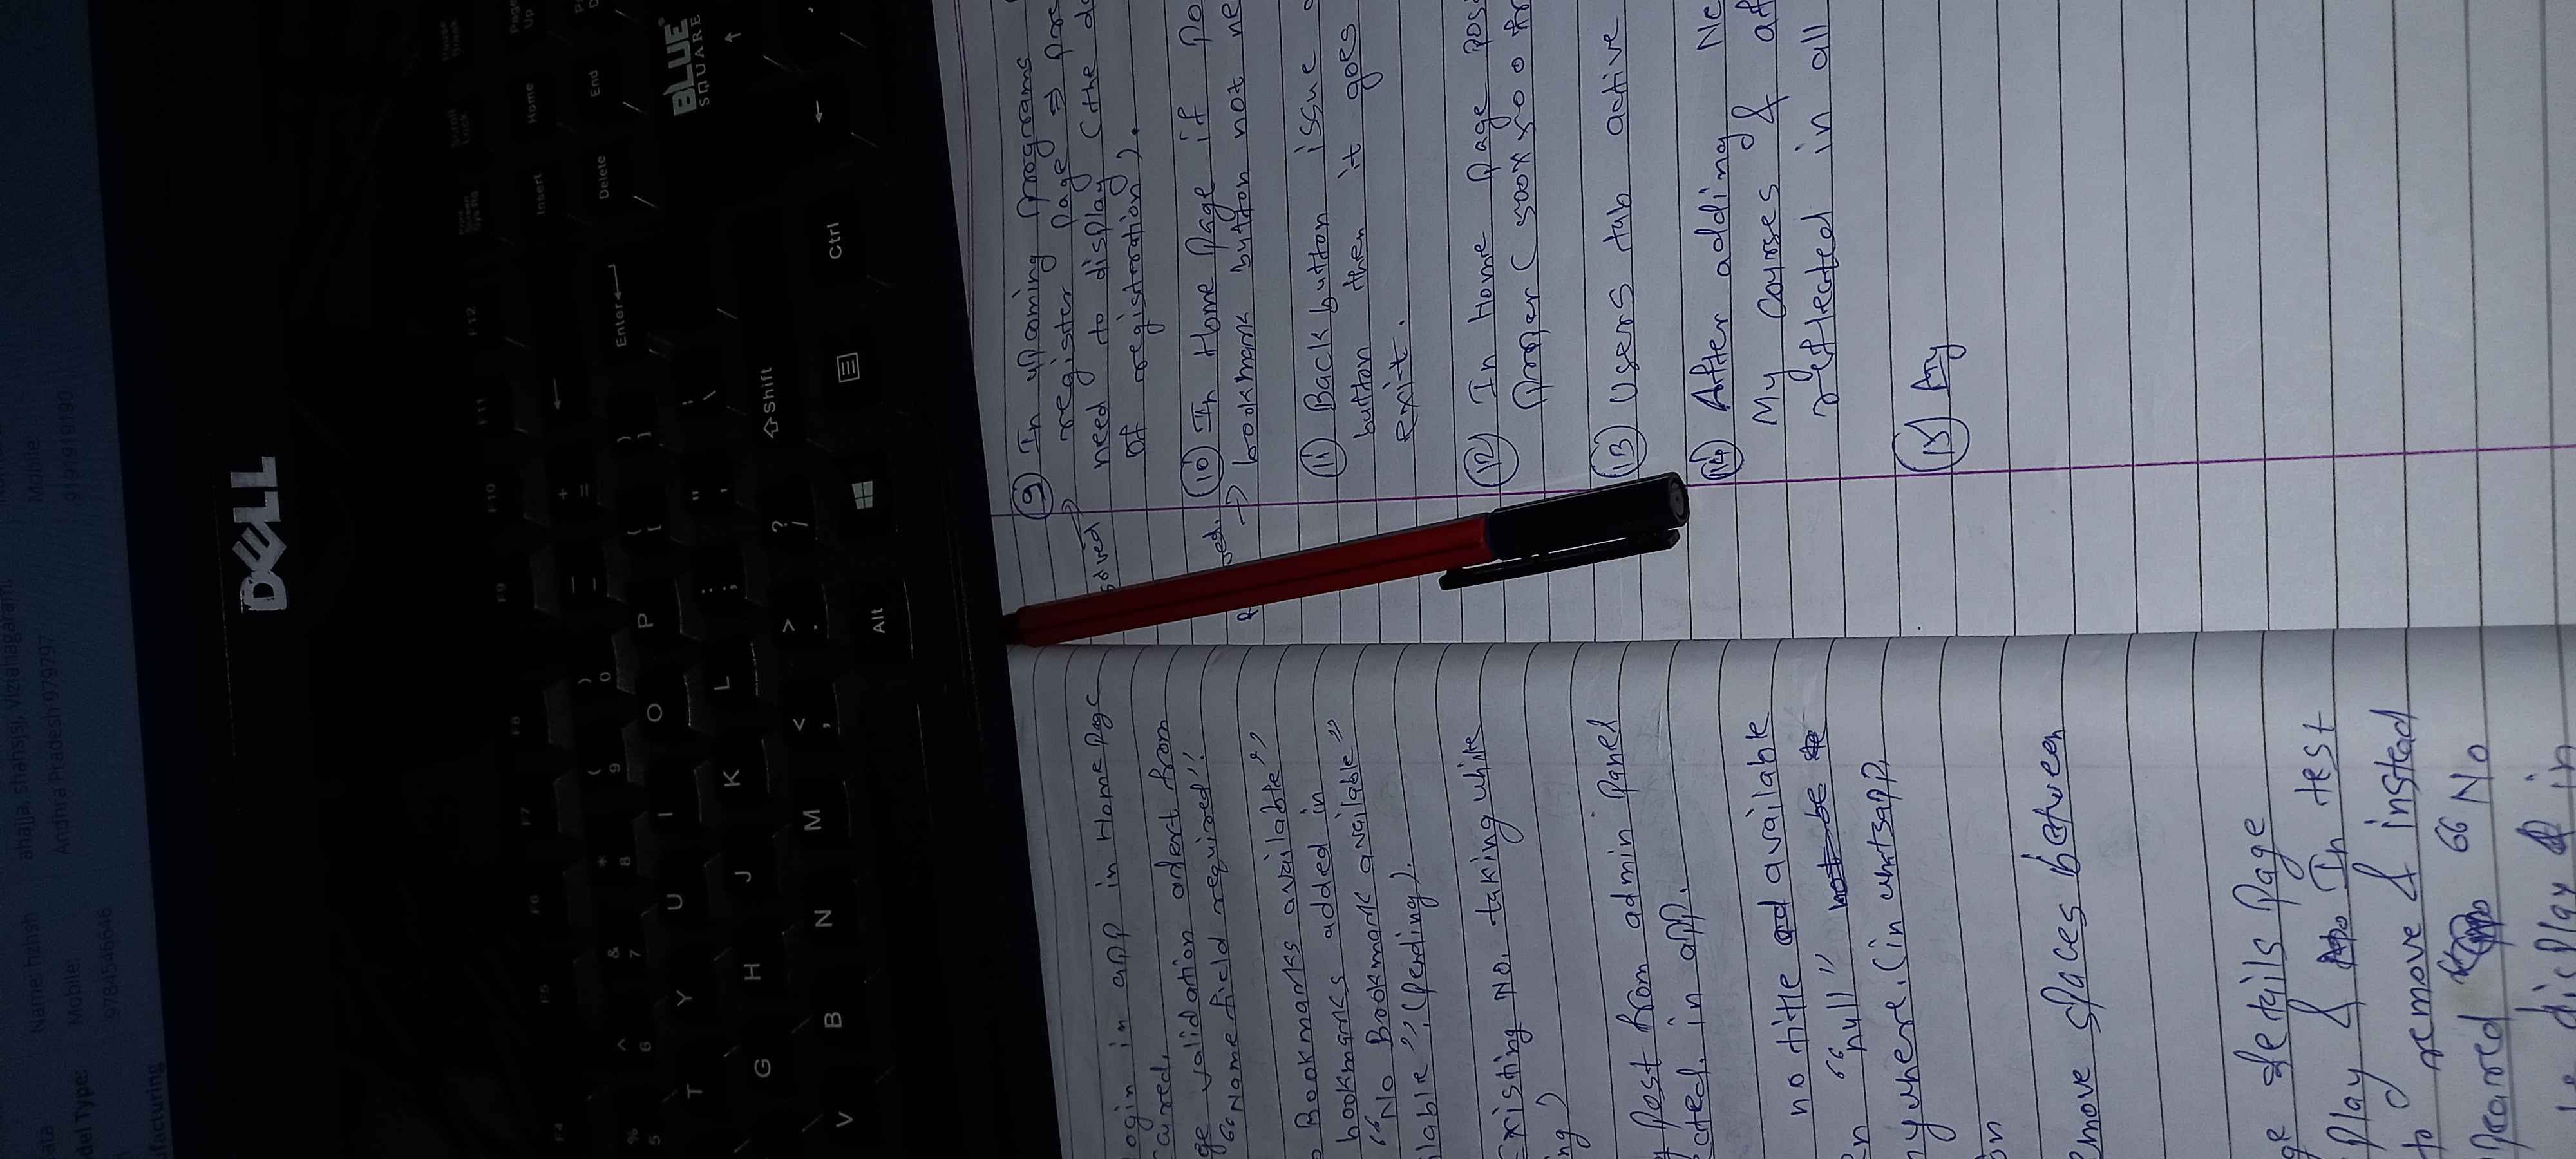 ata
Name: hzhsh
ahajja, shahsjsj, Vizianagaram,
del Type:
Mobile:
Andhra Pradesh 979797
Mobile:
9784546646
9191919190
ufacturing
DELL
F4 F5 F6 F7 F8 F9 F10 F11 F12 Print Screen Sys Rq Scroll Lock Pause Break
% 5 ^ 6 & 7 * 8 ( 9 ) 0 — - + = ← Insert Home Page Up
T Y U I O P { [ } ] Enter Delete End
G H J K L : ; " ' \
BLUE
SQUARE
V B N M < , > . ? / Shift ↑
Alt Ctrl ←
ogin in app in Home Page
ge validation alert from
"Name field required"
Bookmarks available"
bookmarks added in
"No Bookmark available"
ilable", (pending).
Existing No. taking while
ng)
post from admin panel
ected. in app.
no title available
en "null" not be
nywhere. (in whatsapp,
on
emove spaces between
ge details page
play & In test
to remove & instead
peared "No
display & in
⑨ In upcoming programs
solved → register page ⇒ pre
need to display (the da
of registeration).
ved. ⑩ In Home Page if po
→ bookmark button not ne
⑪ Back button issue
button then it goes
exit.
⑫ In Home page pos
proper (500x500
⑬ Users tab active
⑭ After adding Ne
My courses & af
reflected in all
⑮